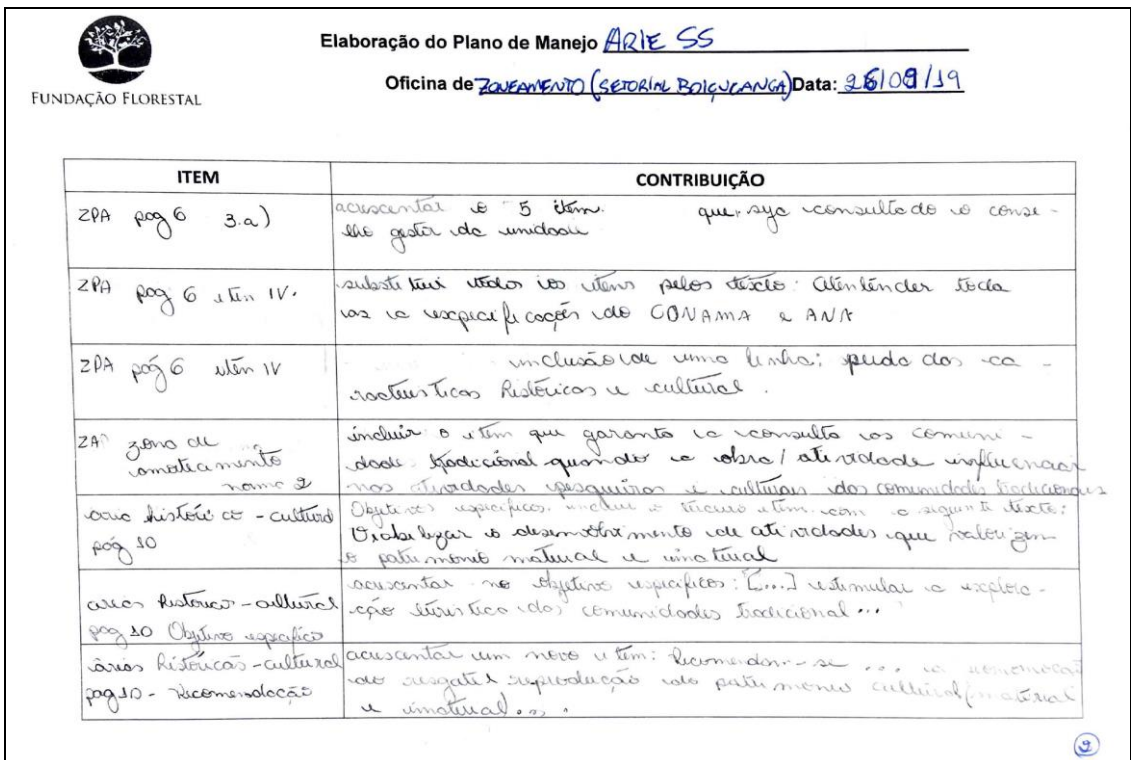 Elaboração do Plano de Manejo ARIE SS
Oficina de ZONEAMENTO (SETORIAL BOIÇUCANGA) Data: 26/09/19
FUNDAÇÃO FLORESTAL
ITEM CONTRIBUIÇÃO
ZPA pog 6 3.a)
acrescentar o 5 item. que seja consultado o conse-
lho gestor da unidade
ZPA pog 6 item IV.
substituir todos os itens pelos texto: Atentender toda
as a expecificações do CONAMA e ANA
ZPA póg 6 item IV
inclusão de uma linha; perda das ca-
racteristicas históricas e cultural.
ZA zona de
amortecimento
norma 2
incluir o item que garanta a consulta as comuni-
dade tradicional quando a obra/ atividade influenciar
nas atividades pesqueiras e culturais das comunidades tradicionais
area histórico - cultural
póg 10
Objetivos especificos, incluir o terceiro item com o seguinte texto:
Viabilizar o desenvolvimento de atividades que valorizem
o patrimonio material e imaterial
areas historico - cultural
pog 10 Objetivo especifico
acrescentar no objetivo especificos: [...] estimular a explora-
ção turistica das comunidades tradicional ...
áreas históricas - cultural
pag 10 - Recomendação
acrescentar um novo item: Recomendam-se ... a
do resgate reprodução do patrimonio cultural/material
e imaterial ...
2